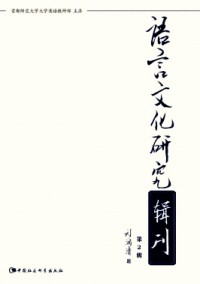 首都师范大学大学英语教研部 主办
语言文化研究
辑刊
第2辑
刘润清 题
中国社会科学出版社